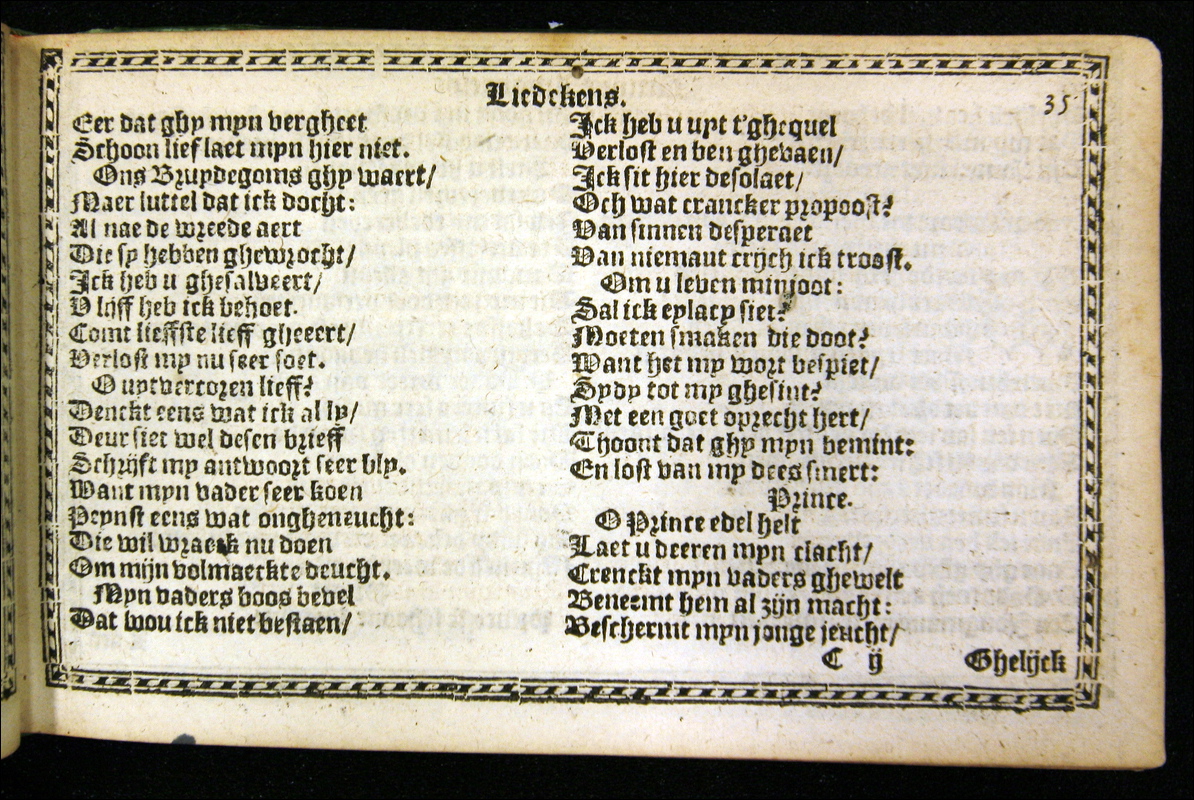 Liedekens.
35
Eer dat ghy myn vergheet
Schoon lief laet myn hier niet.
Ons Bruydegoms ghy waert/
Maer luttel dat ick docht:
Al nae de wreede aert
Die sy hebben ghewrocht/
Ick heb u ghesalveert/
V lijff heb ick behoet.
Comt lieffste lieff gheeert/
Verlost my nu seer soet.
O uutvercozen lieff?
Denckt eens wat ick al ly/
Deur siet wel desen brieff
Schrijft my antwoort seer bly.
Want myn vader seer koen
Peynst eens wat ongheneucht:
Die wil wraeck nu doen
Om mijn volmaeckte deucht.
Myn vaders boos bevel
Dat wou ick niet bestaen/
Ick heb u uyt t'ghequel
Verlost en ben ghevaen/
Ick sit hier desolaet/
Och wat crancker propoost?
Van sinnen desperaet
Van niemant crijch ick troost.
Om u leven minjoot:
Sal ick eylacy siet?
Moeten smaken die doot?
Want het my wort bespiet/
Sydy tot my ghesint?
Met een goet oprecht hert/
Thoont dat ghy myn bemint:
En lost van my dees smert:
Prince.
O Prince edel helt
Laet u deeren myn clacht/
Crenckt myn vaders ghewelt
Beneemt hem al zijn macht:
Beschermt myn jonge jeucht/
C ij
Ghelijck